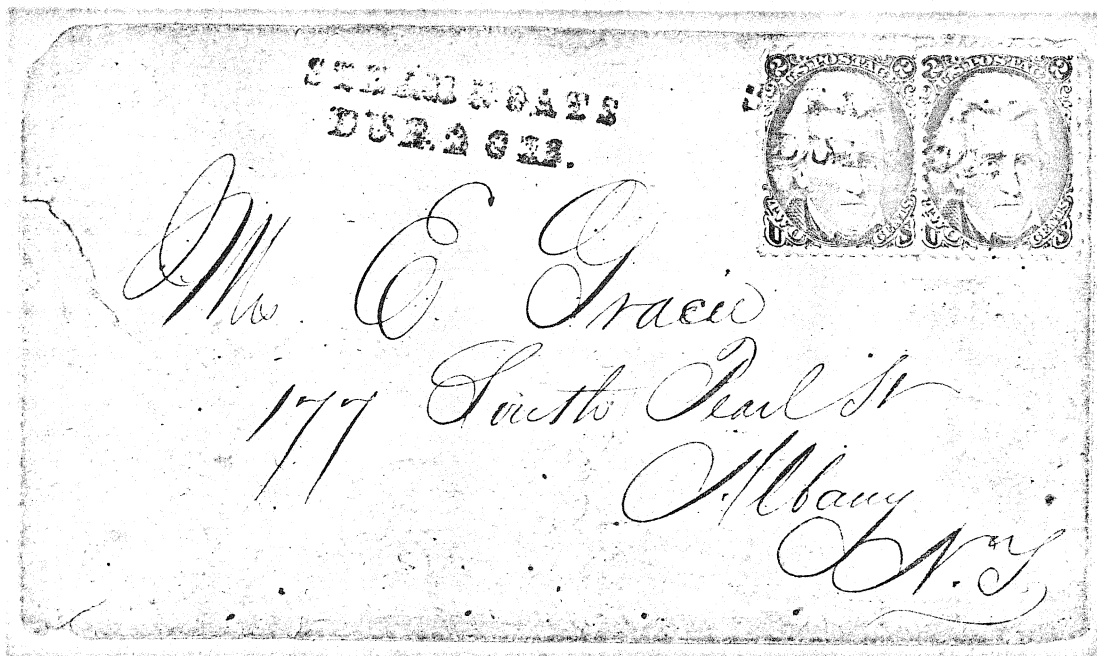 STEAMBOATS
DURAGH.
U.S. POSTAGE
U.S. POSTAGE
Mrs. E. Gracie
177 South Pearl St
Albany
N.Y.